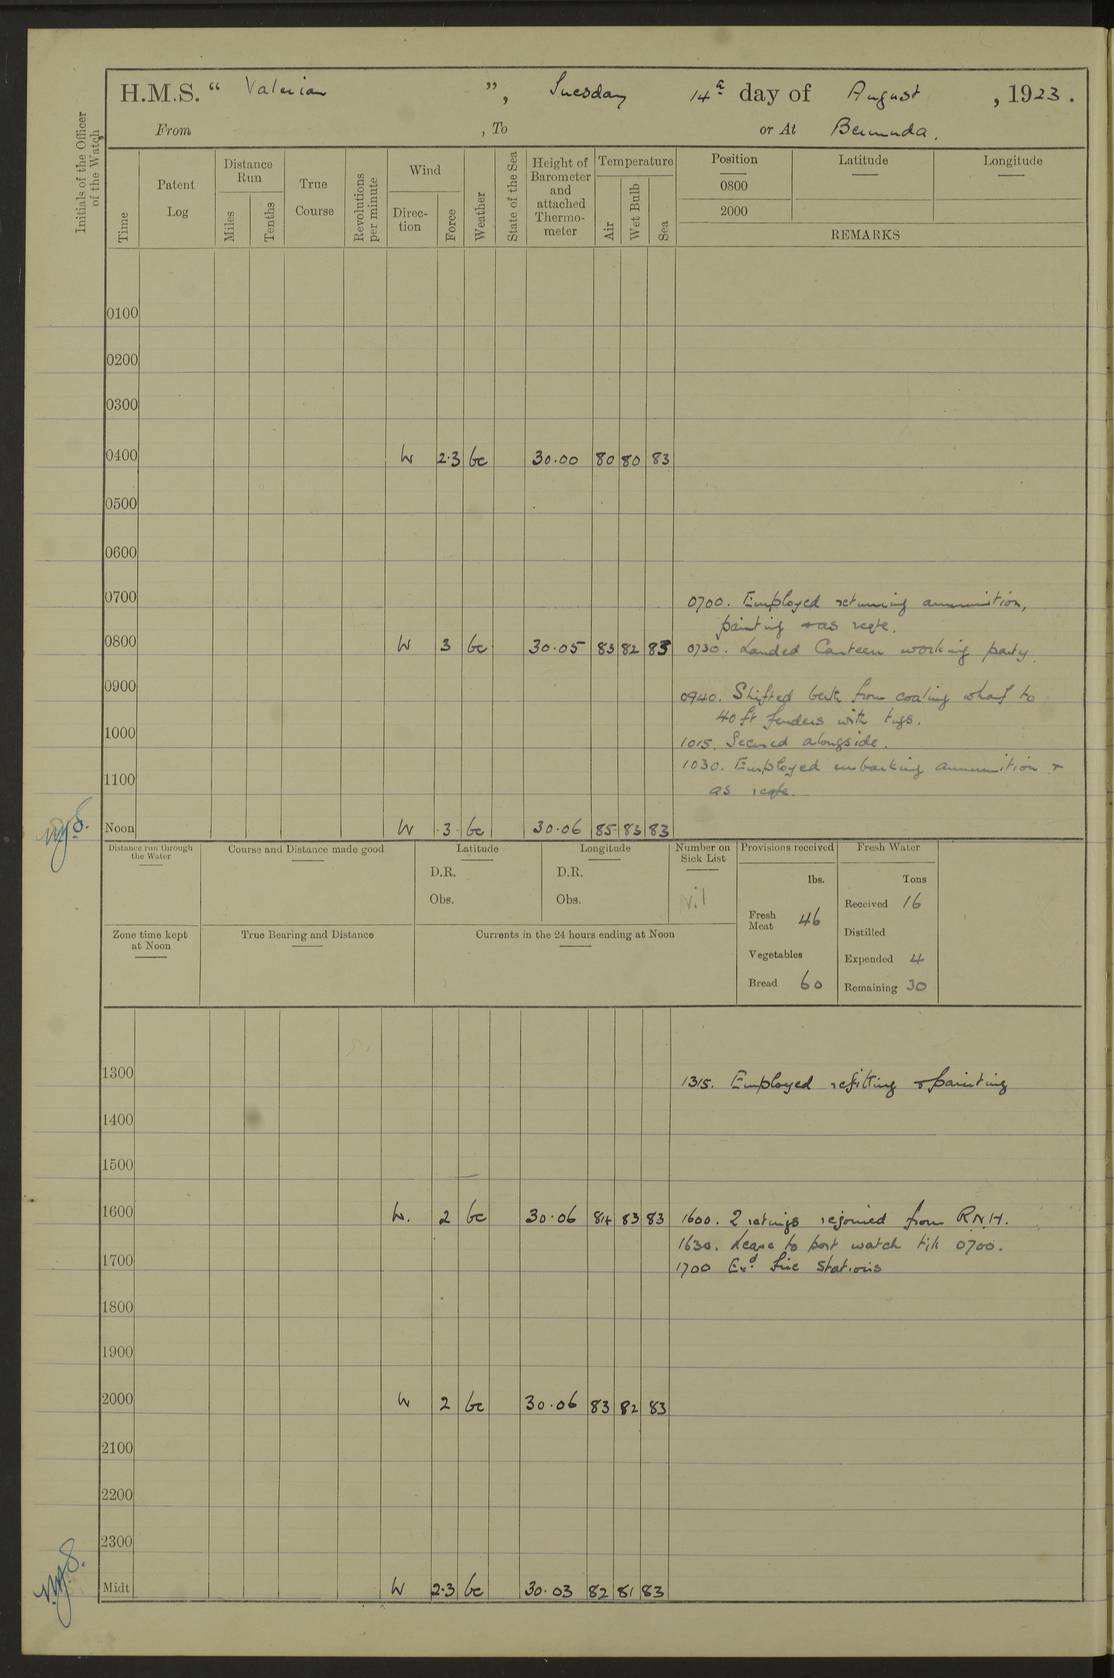 H.M.S. " Valerian ", Tuesday 14th day of August, 1923.
From , To or At Bermuda.
Initials of the Officer of the Watch
Time
Patent Log
Distance Run
Miles
Tenths
True Course
Revolutions per minute
Wind
Direc-tion
Force
Weather
State of the Sea
Height of Barometer and attached Thermo-meter
Temperature
Air
Wet Bulb
Sea
Position Latitude Longitude
0800
2000
REMARKS
0100
0200
0300
0400 W 2·3 bc 30·00 80 80 83
0500
0600
0700 0700. Employed returning ammunition,
painting & as reqte.
0800 W 3 bc 30·05 83 82 83 0730. Landed Canteen working party.
0900 0940. Shifted berth from coaling wharf to
40 ft fenders with tugs.
1000 1015. Secured alongside.
1030. Employed embarking ammunition &
1100 as reqte.
Noon W 3 bc 30·06 85 83 83
Distance run through the Water
Course and Distance made good
Latitude
D.R.
Obs.
Longitude
D.R.
Obs.
Number on Sick List
Nil
Provisions received
lbs.
Fresh Meat 46
Vegetables
Bread 60
Fresh Water
Tons
Received 16
Distilled
Expended 4
Remaining 30
Zone time kept at Noon
True Bearing and Distance
Currents in the 24 hours ending at Noon
1300 1315. Employed refitting & painting
1400
1500
1600 W. 2 bc 30·06 84 83 83 1600. 2 ratings rejoined from R.N.H.
1630. Leave to port watch till 0700.
1700 1700 Exd. fire stations
1800
1900
2000 W 2 bc 30·06 83 82 83
2100
2200
2300
Midt W 2·3 bc 30·03 82 81 83